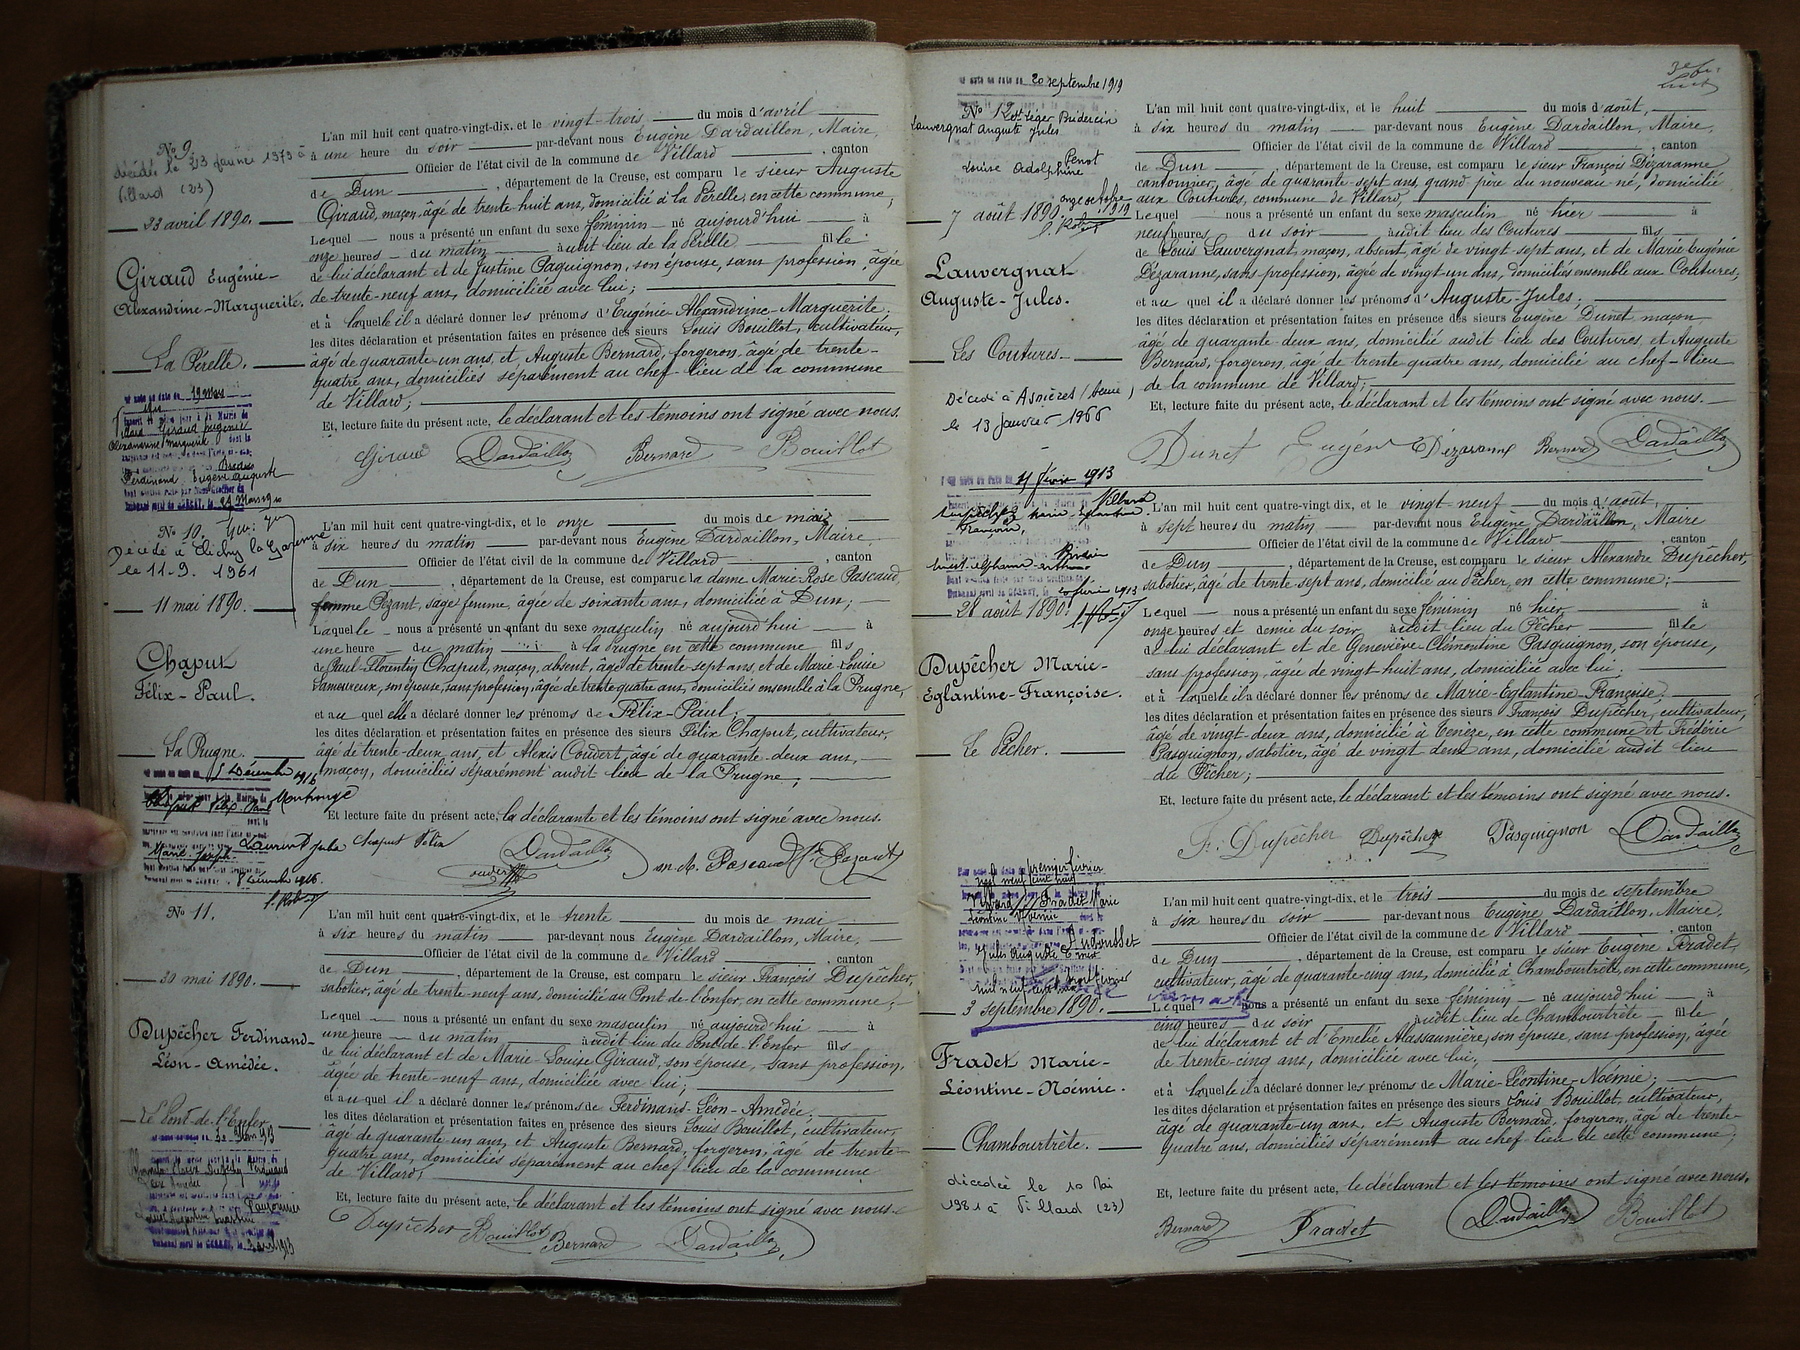 No 9.
décédé le 23 janvier 1973 à
Villard (23)
23 avril 1890.
Giraud Eugénie-
Alexandrine-Marguerite.
La Pérelle.
L'an mil huit cent quatre-vingt-dix, et le vingt-trois du mois d'avril
à une heure du soir par-devant nous Eugène Dardaillon, Maire,
Officier de l'état civil de la commune de Villard, canton
de Dun, département de la Creuse, est comparu le sieur Auguste
Giraud, maçon, âgé de trente-huit ans, domicilié à la Pérelle, en cette commune;
Lequel nous a présenté un enfant du sexe féminin né aujourd'hui à
onze heures du matin audit lieu de la Pérelle fille
de lui déclarant et de Justine Paquignon, son épouse, sans profession, âgée
de trente-neuf ans, domiciliée avec lui;
et à laquelle il a déclaré donner les prénoms d'Eugénie Alexandrine-Marguerite.
les dites déclaration et présentation faites en présence des sieurs Louis Bouillot, cultivateur,
âgé de quarante-un ans, et Auguste Bernard, forgeron, âgé de trente-
quatre ans, domiciliés séparément au chef lieu de la commune
de Villard;
Et, lecture faite du présent acte, le déclarant et les témoins ont signé avec nous.
Giraud Dardaillon Bernard Bouillot
19 Mars
Giraud Eugénie
Alexandrine Marguerite
Ferdinand Eugène Auguste
No 10.
Décédé à Clichy la Garenne
le 11-9. 1961
11 mai 1890.
Chaput
Félix-Paul.
La Prugne.
L'an mil huit cent quatre-vingt-dix, et le onze du mois de mai
à six heures du matin par-devant nous Eugène Dardaillon, Maire,
Officier de l'état civil de la commune de Villard, canton
de Dun, département de la Creuse, est comparue la dame Marie-Rose Pascaud,
femme Pezant, sage femme, âgée de soixante ans, domiciliée à Dun;
Laquelle nous a présenté un enfant du sexe masculin né aujourd'hui à
une heure du matin à la Prugne en cette commune fils
de Paul-Florentin Chaput, maçon, absent, âgé de trente sept ans, et de Marie-Louise
Lamoureux, son épouse, sans profession, âgée de trente quatre ans, domiciliés ensemble à la Prugne,
et au quel elle a déclaré donner les prénoms de Félix-Paul.
les dites déclaration et présentation faites en présence des sieurs Félix Chaput, cultivateur,
âgé de trente-deux ans, et Alexis Coudert, âgé de quarante-deux ans,
maçon, domiciliés séparément audit lieu de la Prugne;
Et lecture faite du présent acte, la déclarante et les témoins ont signé avec nous.
Chaput Félix Dardaillon
Décembre 1916
Montrouge
Chaput Félix Paul
Laurent Julia
Marie Joseph
No 11.
30 mai 1890.
Dupêcher Ferdinand-
Léon-Amédée.
Le Pont-de-l'Enfer
L'an mil huit cent quatre-vingt-dix, et le trente du mois de mai
à six heures du matin par-devant nous Eugène Dardaillon, Maire,
Officier de l'état civil de la commune de Villard, canton
de Dun, département de la Creuse, est comparu le sieur François Dupêcher,
sabotier, âgé de trente-neuf ans, domicilié au Pont de l'Enfer, en cette commune;
Lequel nous a présenté un enfant du sexe masculin né aujourd'hui à
une heure du matin audit lieu du Pont-de-l'Enfer fils
de lui déclarant et de Marie-Louise Giraud, son épouse, sans profession,
âgée de trente-neuf ans, domiciliée avec lui;
et au quel il a déclaré donner les prénoms de Ferdinand-Léon-Amédée.
les dites déclaration et présentation faites en présence des sieurs Louis Bouillot, cultivateur,
âgé de quarante un ans, et Auguste Bernard, forgeron, âgé de trente-
quatre ans, domiciliés séparément au chef lieu de la commune
de Villard;
Et, lecture faite du présent acte, le déclarant et les témoins ont signé avec nous.
Dupêcher Bouillot Bernard Dardaillon
20 septembre 1919
No 12
Lauvergnat Auguste Jules
Penot
Louise Adolphine
onze octobre
1919
7 août 1890.
Lauvergnat
Auguste-Jules.
Les Coutures.
Décédé à Asnières (Seine)
le 13 Janvier 1966
L'an mil huit cent quatre-vingt-dix, et le huit du mois d'août,
à six heures du matin par-devant nous Eugène Dardaillon, Maire,
Officier de l'état civil de la commune de Villard, canton
de Dun, département de la Creuse, est comparu le sieur François Dézaranne
cantonnier, âgé de quarante-sept ans, grand père du nouveau né, domicilié
aux Coutures, commune de Villard,
Lequel nous a présenté un enfant du sexe masculin né hier à
neuf heures du soir audit lieu des Coutures fils
de Louis Lauvergnat, maçon, absent, âgé de vingt-sept ans, et de Marie Eugénie
Dézaranne, sans profession, âgée de vingt-un ans, domiciliés ensemble aux Coutures,
et au quel il a déclaré donner les prénoms d'Auguste-Jules.
les dites déclaration et présentation faites en présence des sieurs Eugène Dunet maçon
âgé de quarante-deux ans, domicilié audit lieu des Coutures, et Auguste
Bernard, forgeron, âgé de trente quatre ans, domicilié au chef-lieu
de la commune de Villard;
Et, lecture faite du présent acte, le déclarant et les témoins ont signé avec nous.
Dunet Eugène Dézaranne Bernard Dardaillon
février 1913
28 août 1890.
Dupêcher Marie-
Eglantine-Françoise.
Le Pêcher.
L'an mil huit cent quatre-vingt-dix, et le vingt-neuf du mois d'août,
à sept heures du matin par-devant nous Eugène Dardaillon, Maire
Officier de l'état civil de la commune de Villard, canton
de Dun, département de la Creuse, est comparu le sieur Alexandre Dupêcher,
sabotier, âgé de trente sept ans, domicilié au Pêcher, en cette commune;
Lequel nous a présenté un enfant du sexe féminin né hier, à
onze heures et demie du soir audit lieu du Pêcher fille
de lui déclarant et de Geneviève-Clémentine Pasquignon, son épouse,
sans profession, âgée de vingt-huit-ans, domiciliée avec lui;
et à laquelle il a déclaré donner les prénoms de Marie-Eglantine-Françoise.
les dites déclaration et présentation faites en présence des sieurs François Dupêcher, cultivateur,
âgé de vingt-deux ans, domicilié à Cenèze, en cette commune et Frédéric
Pasquignon, sabotier, âgé de vingt deux ans, domicilié audit lieu
du Pêcher;
Et, lecture faite du présent acte, le déclarant et les témoins ont signé avec nous.
F. Dupêcher Dupêcher Pasquignon Dardaillon
premier février
mil neuf cent
Villard Fradet Marie
Léontine Noémie
Jules Auguste
3 septembre 1890.
Fradet Marie-
Léontine-Noémie.
Chambourtrête.
décédée le 10 Mai
1981 à Villard (23)
L'an mil huit cent quatre-vingt-dix, et le trois du mois de septembre
à six heures du soir par-devant nous Eugène Dardaillon, Maire,
Officier de l'état civil de la commune de Villard, canton
de Dun, département de la Creuse, est comparu le sieur Eugène Fradet,
cultivateur, âgé de quarante-cinq ans, domicilié à Chambourtrête, en cette commune,
Lequel nous a présenté un enfant du sexe féminin né aujourd'hui à
cinq heures du soir audit lieu de Chambourtrête fille
de lui déclarant et d'Emélie Alassaunière, son épouse, sans profession, âgée
de trente-cinq ans, domiciliée avec lui,
et à laquelle il a déclaré donner les prénoms de Marie-Léontine-Noémie.
les dites déclaration et présentation faites en présence des sieurs Louis Bouillot, cultivateur,
âgé de quarante-un ans, et Auguste Bernard, forgeron, âgé de trente-
quatre ans, domiciliés séparément au chef-lieu de cette commune;
Et, lecture faite du présent acte, le déclarant et les témoins ont signé avec nous.
Bernard Fradet Dardaillon Bouillot